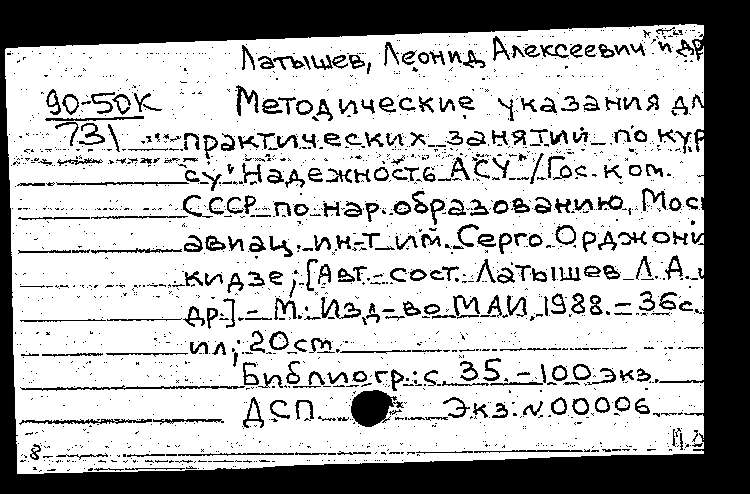 Латышев, Леонид Алексеевич и др
90-50К Методические указания дл
731 практических занятий по кур
су "Надежность АСУ" / Гос. ком.
СССР по нар. образованию, Моск
авиац. ин-т им. Серго Орджони
кидзе; [Авт.-сост. Латышев Л.А. и
др.] - М.: Изд-во МАИ, 1988. - 36с.
ил.; 20 см.
Библиогр.: с. 35. - 100 экз.
ДСП Экз. N 00006
8